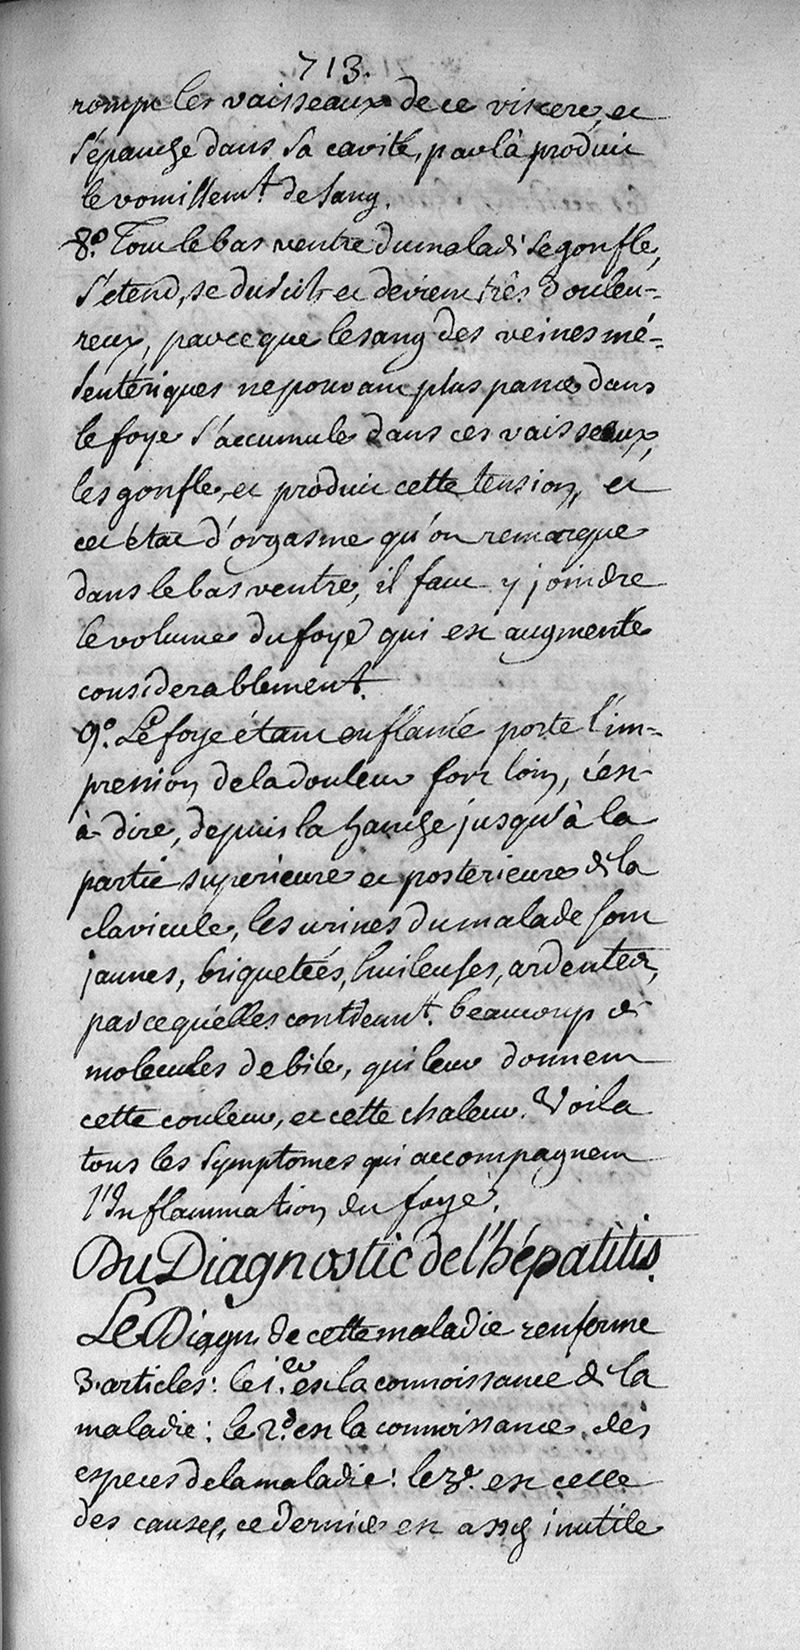 713.
rompe les vaisseaux de ce viscere, et
s'épanche dans sa cavité, par là produit
le vomissem.t de sang.
8.o Tout le bas ventre du malade se gonfle,
s'etend, se durcit et devient très douleu-
reux, parceque le sang des veines mé-
sentériques ne pouvant plus passer dans
le foye s'accumule dans ces vaisseaux,
les gonfle, et produit cette tension, et
cet état d'orgasme qu'on remarque
dans le bas ventre, il faut y joindre
le volume du foye qui est augmenté
considerablement.
9.o Le foye étant enflamé porte l'im-
pression de la douleur fort loin, c'est-
à-dire, depuis la hanche jusqu'à la
partie superieure et posterieure de la
clavicule, les urines du malade sont
jaunes, briquetées, huileuses, ardentes,
parcequ'elles contienn.t beaucoup de
molecules de bile, qui leur donnent
cette couleur, et cette chaleur. Voila
tous les symptomes qui accompagnent
l'Inflammation du foye.
Du Diagnostic de l'hépatitis.
Le Diagn. de cette maladie renferme
3. articles: le 1.er est la connoissance de la
maladie: le 2.d est la connoissance des
especes de la maladie: le 3.e est celle
des causes, ce dernier est assez inutile